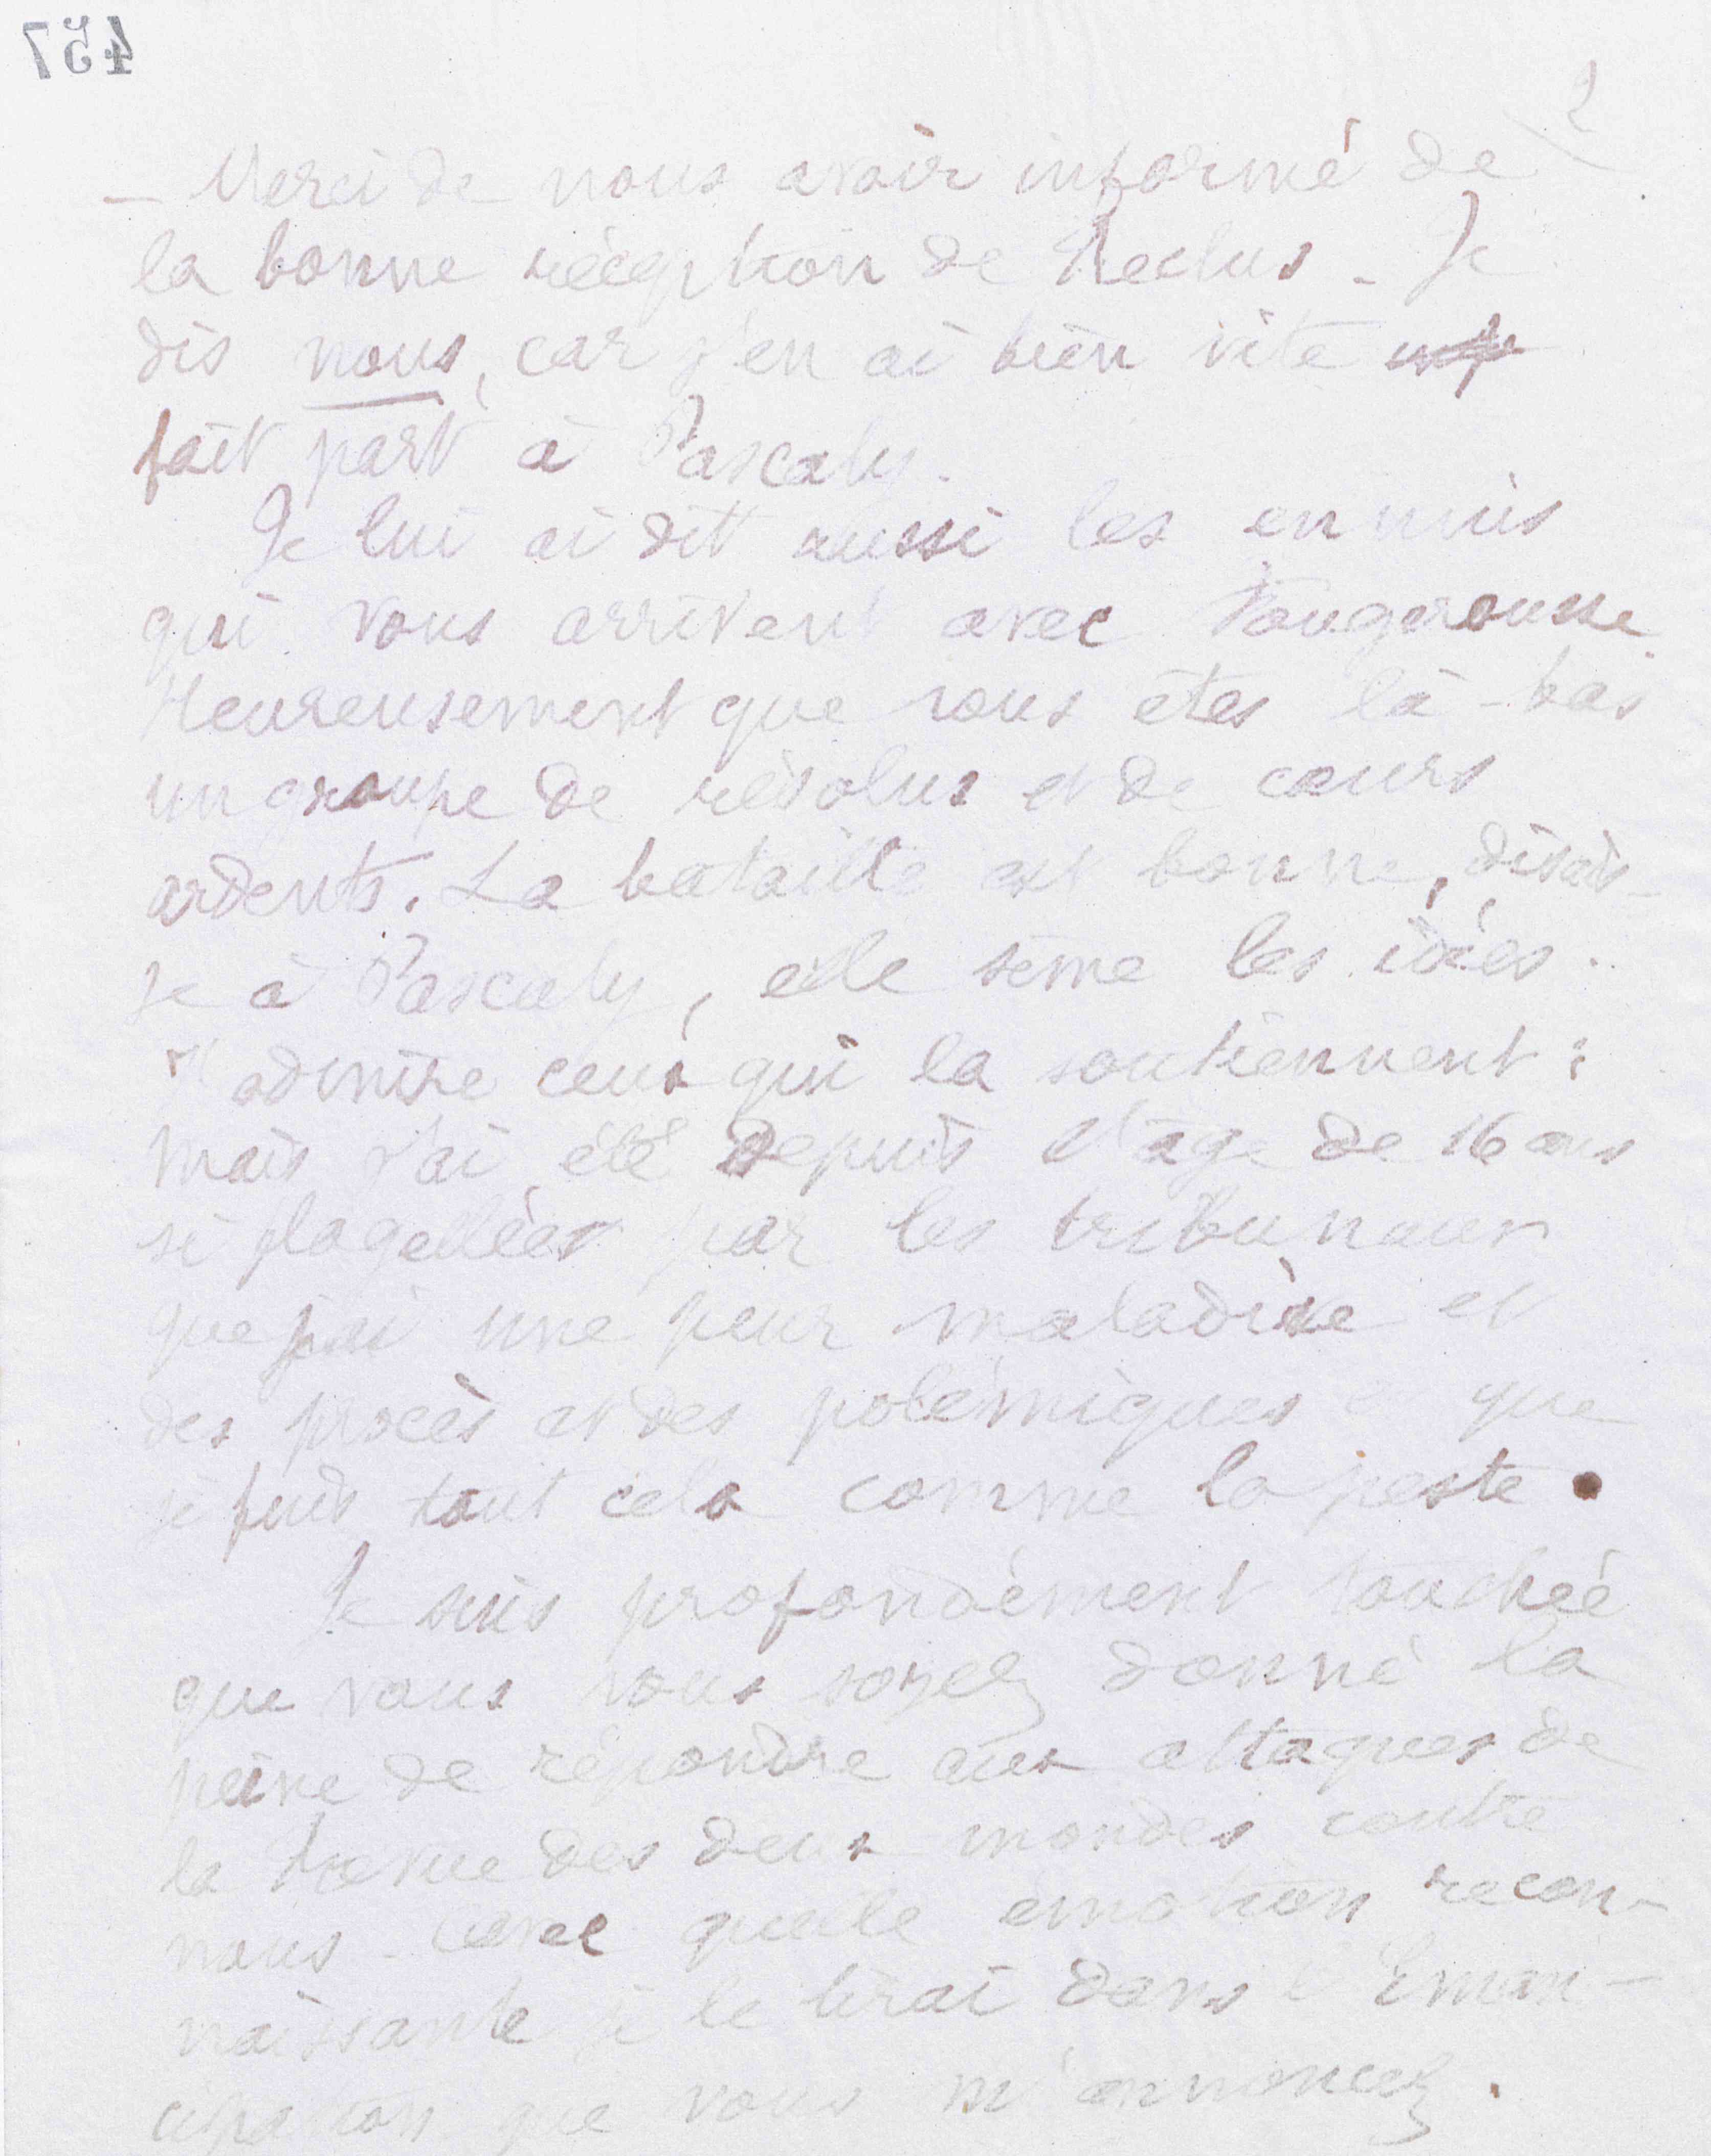 457
2
— Merci de nous avoir informé de
la bonne réception de Reclus - Je
dis nous, car j'en ai bien vite
fait part à Pascaly.
Je lui ai dit aussi les ennuis
qui vous arrivent avec Fougerousse.
Heureusement que vous êtes là-bas
un groupe de résolus et de cœurs
ardents. La bataille est bonne, disais-
je à Pascaly, elle sème les idées.
J'admire ceux qui la soutiennent :
mais j'ai été depuis l'âge de 16 ans
si flagellée par les tribunaux
que j'ai une peur maladive et
des procès et des polémiques et que
je fuis tout cela comme la peste.
Je suis profondément touchée
que vous vous soyez donné la
peine de répondre aux attaques de
la Revue des deux mondes contre
nous - Avec quelle émotion recon-
naissante je le lirai dans l'Eman-
cipation que vous m'annoncez.